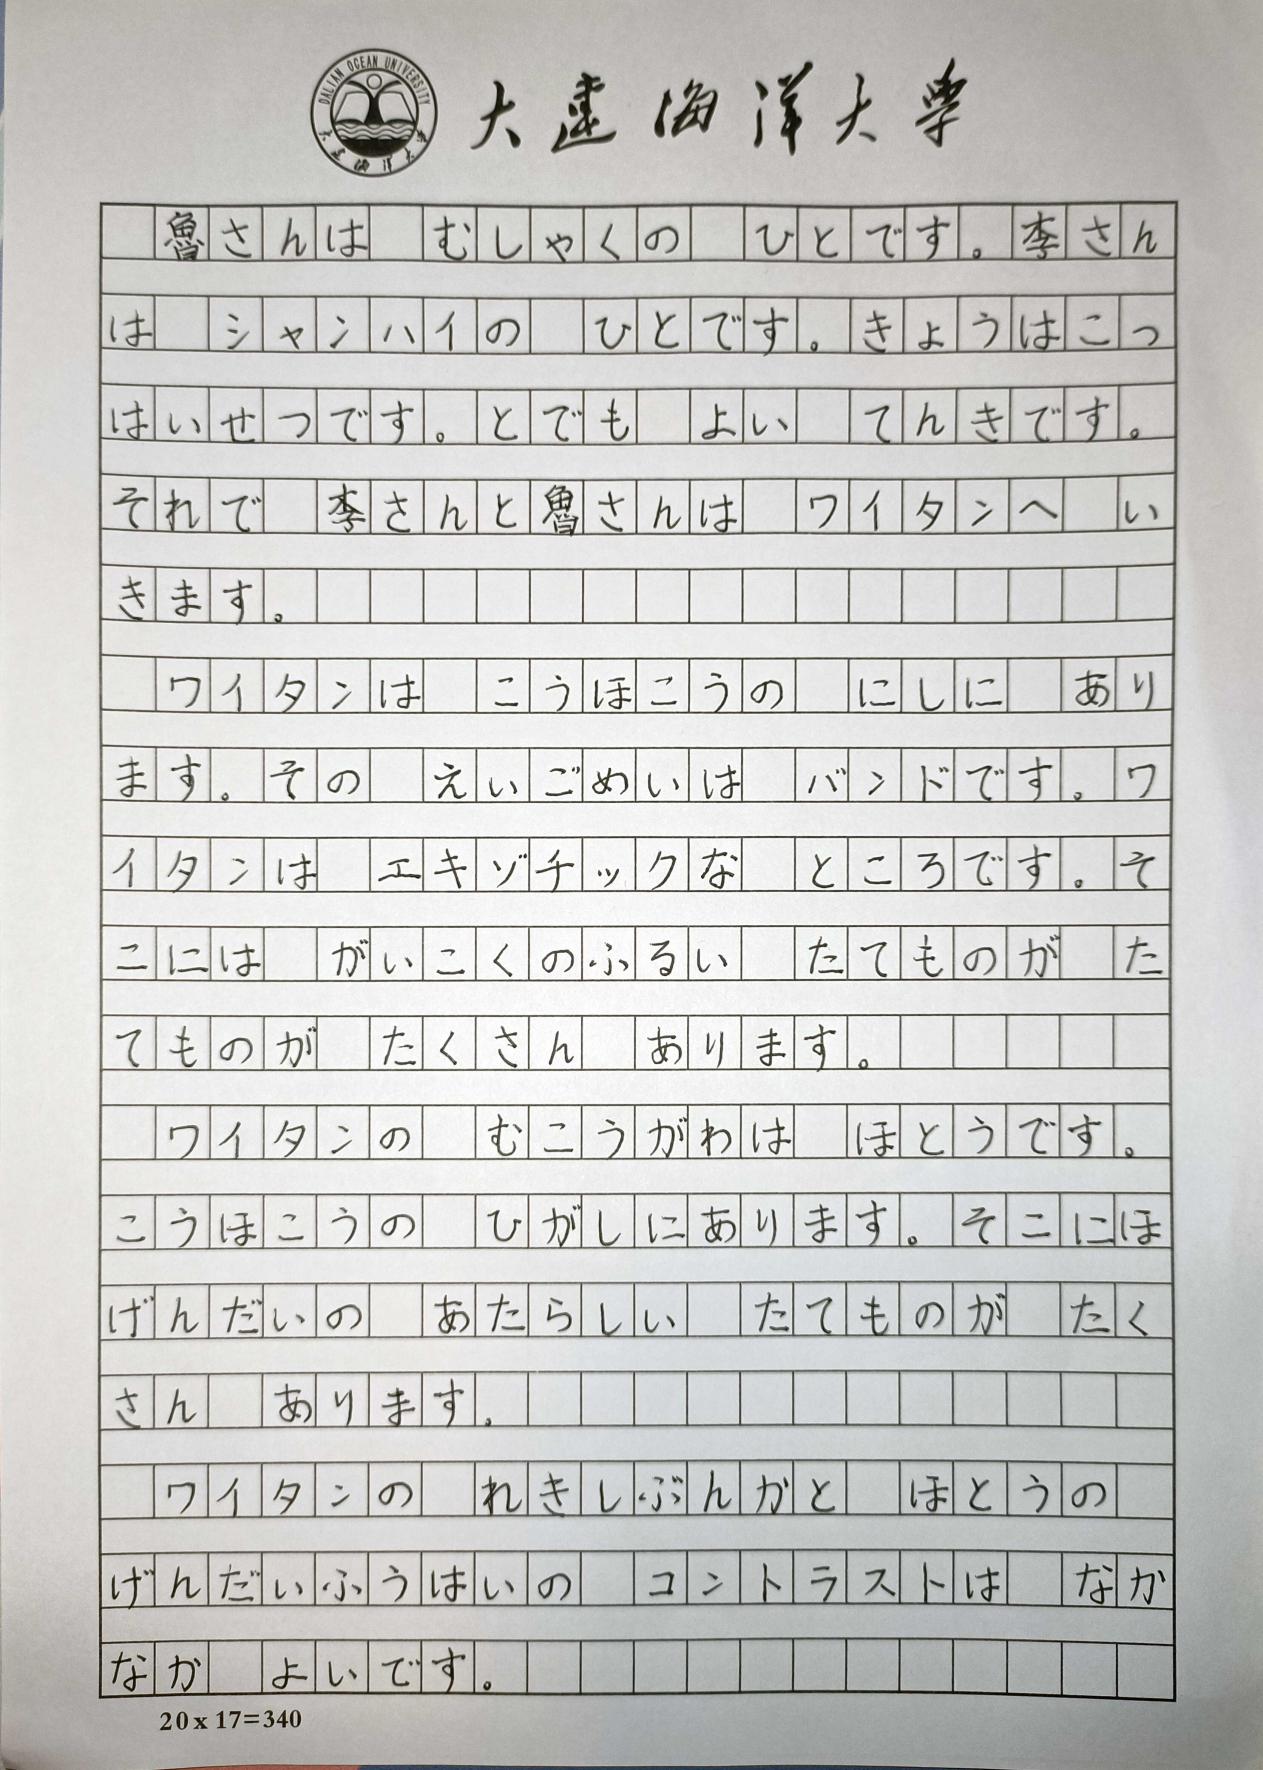 DALIAN OCEAN UNIVERSITY
大连海洋大学
大连海洋大学
魯さんは むしゃくの ひとです。李さん
は シャンハイの ひとです。きょうはこっ
はいせつです。とでも よい てんきです。
それで 李さんと魯さんは ワイタンへ い
きます。
ワイタンは こうほこうの にしに あり
ます。その えいごめいは バンドです。ワ
イタンは エキゾチックな ところです。そ
こには がいこくのふるい たてものが た
てものが たくさん あります。
ワイタンの むこうがわは ほとうです。
こうほこうの ひがしにあります。そこにほ
げんだいの あたらしい たてものが たく
さん あります。
ワイタンの れきしぶんかと ほとうの
げんだいふうはいの コントラストは なか
なか よいです。
20x17=340